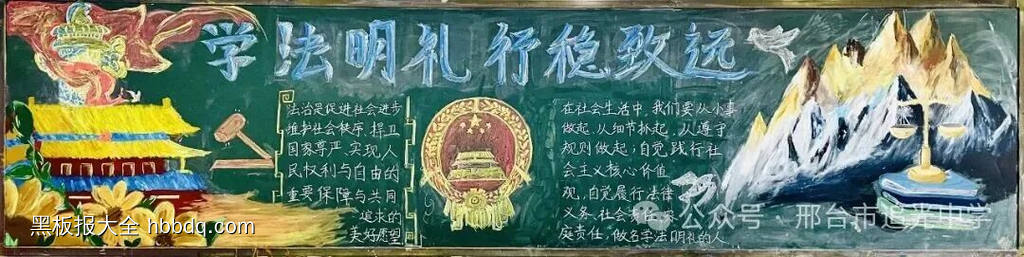 学法明礼 行稳致远
法治是促进社会进步
维护社会秩序,捍卫
国家尊严,实现人
民权利与自由的
重要保障与共同
追求的
美好愿望
在社会生活中,我们要从小事
做起,从细节抓起,从遵守
规则做起;自觉践行社
会主义核心价值
观,自觉履行法律
义务、社会责任、
庭责任,做名学法明礼的人
黑板报大全 hbbdq.com
公众号·邢台市追光中学